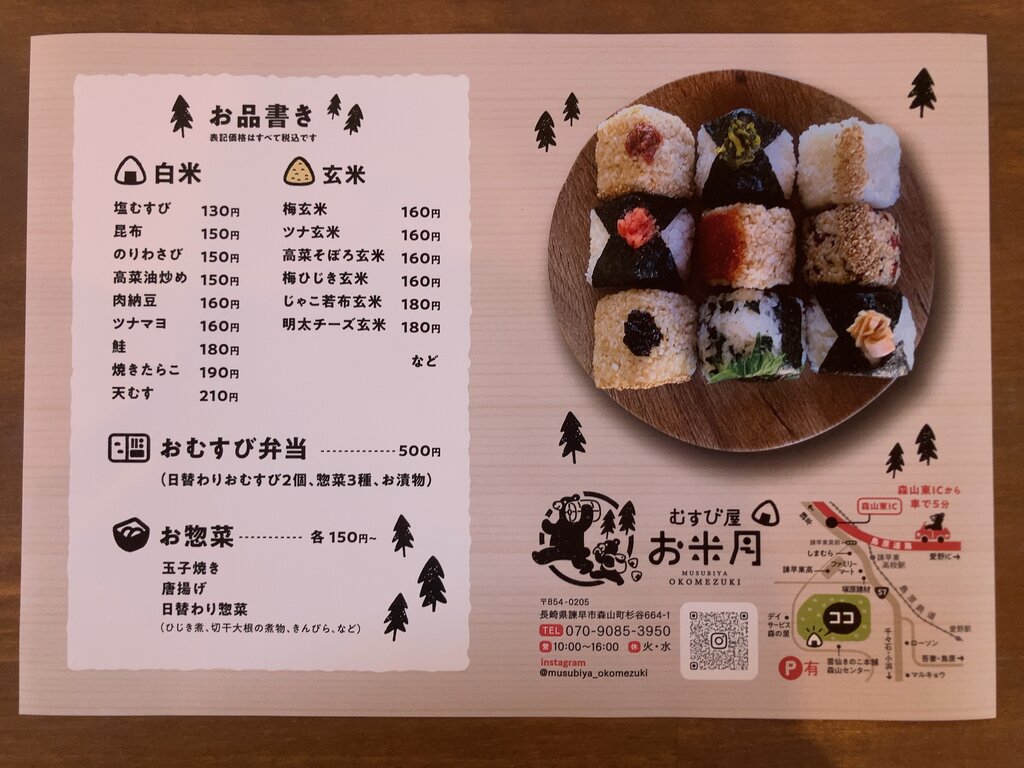 お品書き
表記価格はすべて税込です
白米
塩むすび 130円
昆布 150円
のりわさび 150円
高菜油炒め 150円
肉納豆 160円
ツナマヨ 160円
鮭 180円
焼きたらこ 190円
天むす 210円
玄米
梅玄米 160円
ツナ玄米 160円
高菜そぼろ玄米 160円
梅ひじき玄米 160円
じゃこ若布玄米 180円
明太チーズ玄米 180円
など
おむすび弁当 ------------ 500円
(日替わりおむすび2個、惣菜3種、お漬物)
お惣菜 ---------- 各150円~
玉子焼き
唐揚げ
日替わり惣菜
(ひじき煮、切干大根の煮物、きんぴら、など)
むすび屋
お米月
MUSUBIYA
OKOMEZUKI
〒854-0205
長崎県諫早市森山町杉谷664-1
TEL 070-9085-3950
営 10:00〜16:00 休 火・水
Instagram
@musubiya_okomezuki
森山東ICから
車で5分
森山東IC
諫早
島原道路
愛野IC→
諫早東高前
しまむら
諫早東高
ファミリーマート
諫早東高校駅
塚原建材
57
島原鉄道
愛野駅
ココ
デイサービス森の里
ローソン
吾妻・島原
千々石・小浜
マルキョウ
雲仙きのこ本舗
森山センター
P有